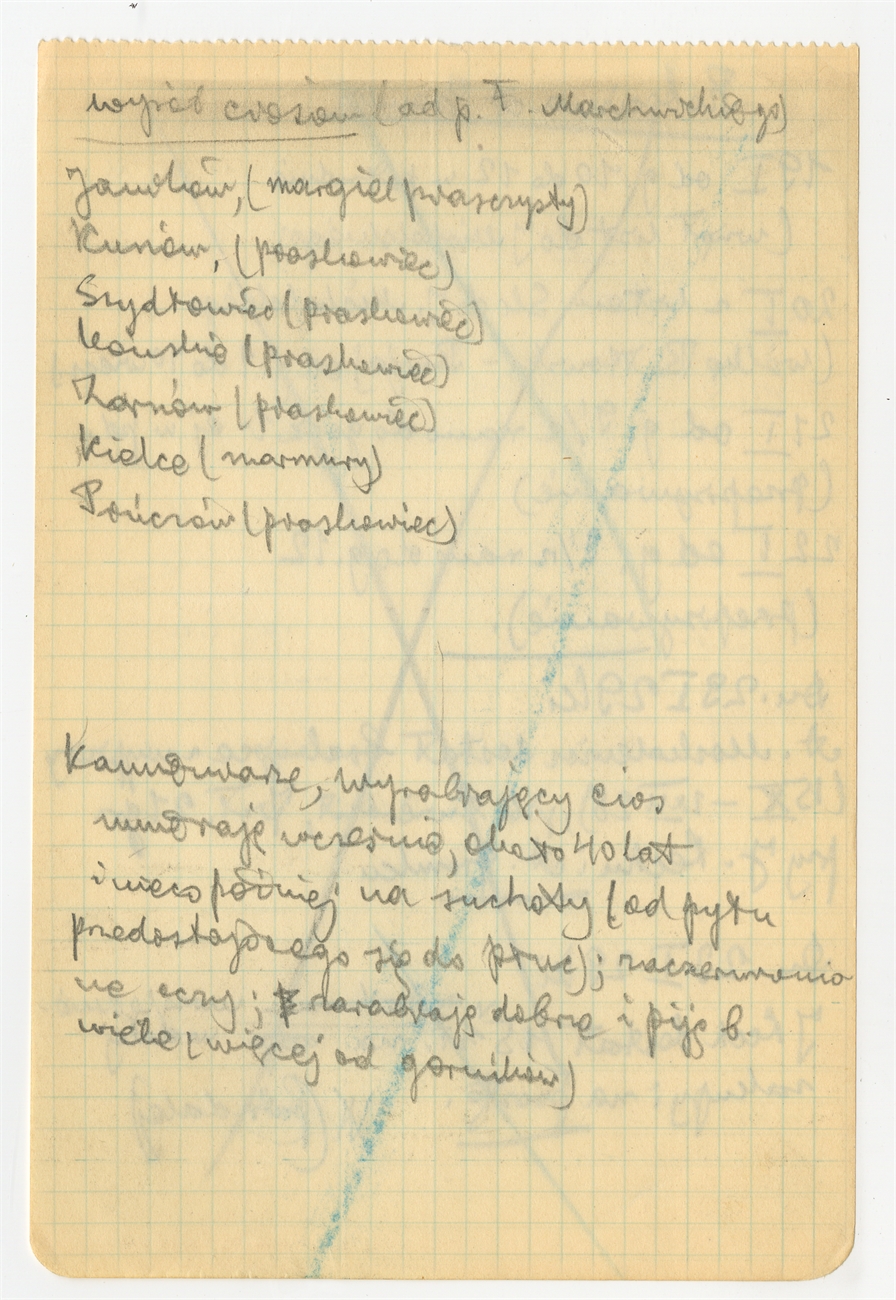 wyrób ciosów (od p. T. Marchwickiego)
Janików, (margiel piaszczysty)
Kunów, (piaskowiec)
Szydłowiec (piaskowiec)
Końskie (piaskowiec)
Żarnów (piaskowiec)
Kielce (marmury)
Pińczów (piaskowiec)
Kamieniarze, wyrabiający cios
umierają wcześnie, około 40 lat
i nieco później na suchoty (od pyłu
przedostającego się do płuc); zaczerwienio
ne oczy; zarabiają dobrze i piją b.
wiele (więcej od górników)